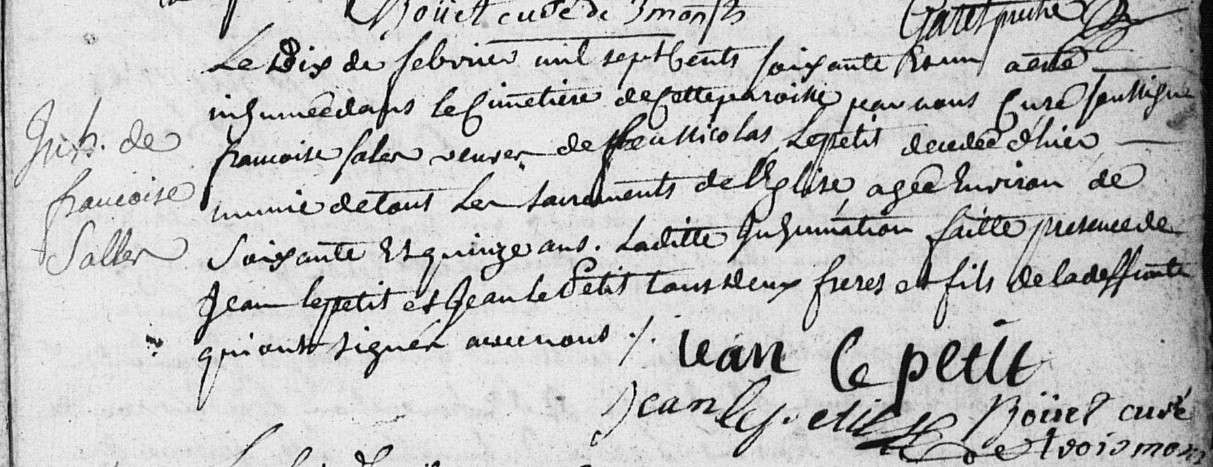 Boüet curé de 3 monts
Garet prestre
Le Dix de febvrier mil sept Cents soixante Et un a esté
inhumée dans le Cimetiere de Cette paroisse par nous Curé soussigné
francoise saler veuve de feu Nicolas Lepetit decedée d'hier
munie de tous Les sacrements de l'Eglise, agée Environ de
Soixante Et quinze ans. Laditte Inhumation faitte presence de
Jean lepetit et Jean le Petit tous deux freres et fils de la deffunte
qui ont signer avec nous /.
Inh. de
francoise
Saller
jean le petit
Jean lepetit
Boüet curé
de trois mons